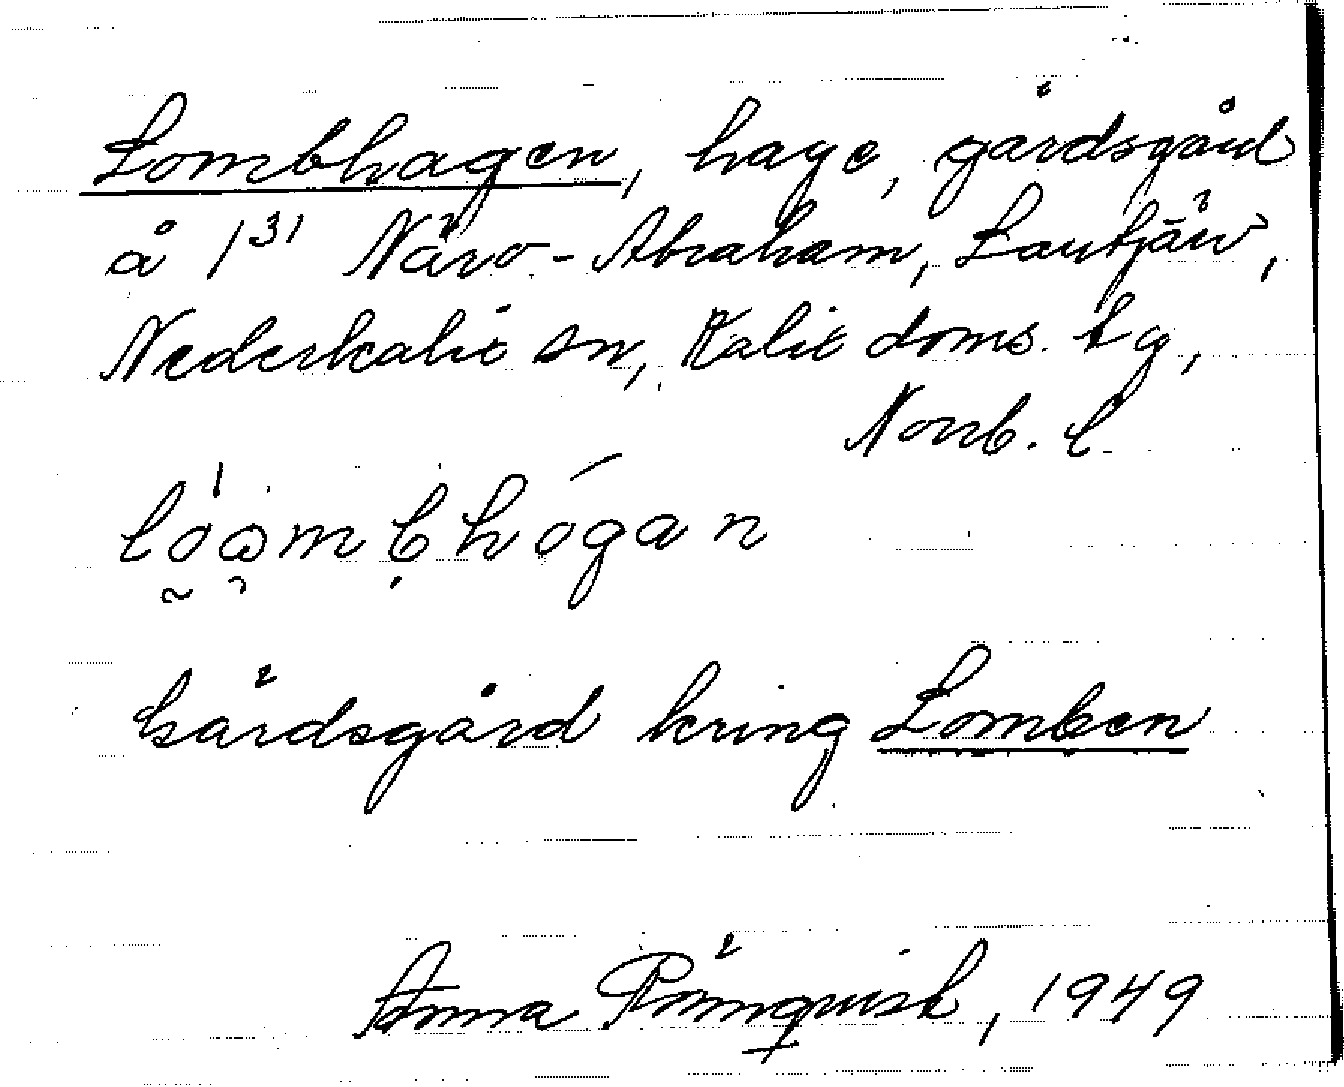 Lombhagen, hage, gärdsgård
å 1³¹ Närvo-Abraham, Lantjärv,
Nederkalix sn, Kalix doms. tg,
Norrb. l
Gärdsgård kring Lomben
Anna Rönnqvist, 1949